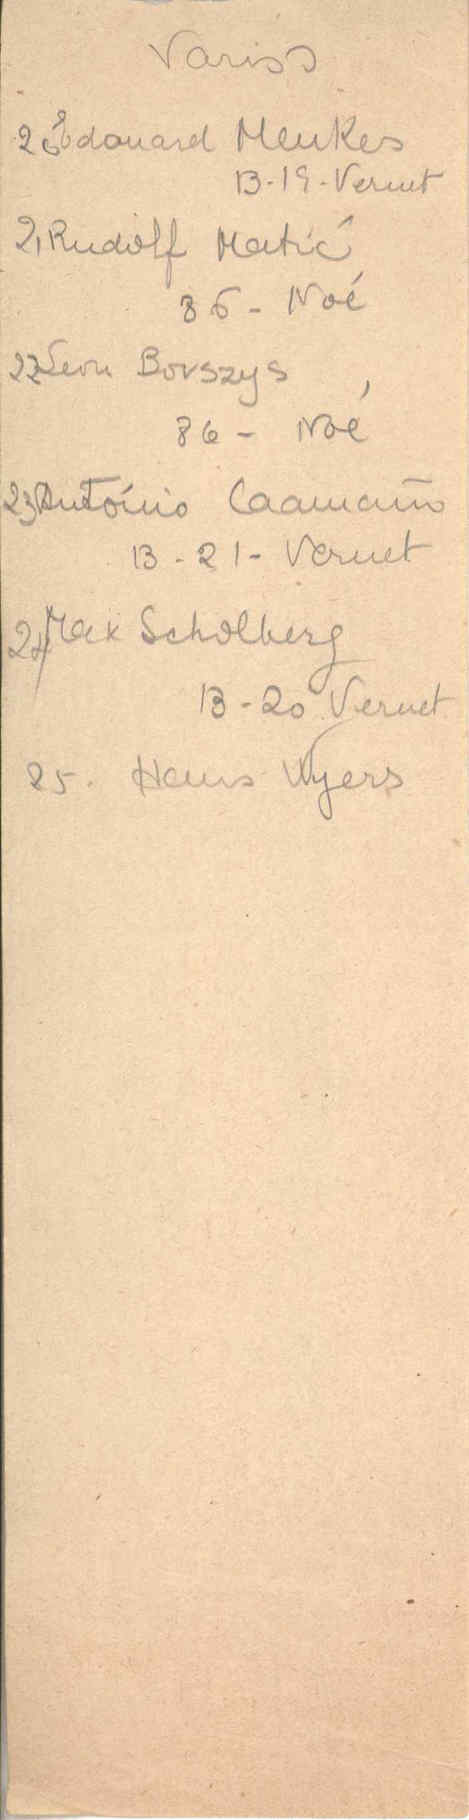 Varios
20 Edouard Menkes
B-19-Vernet
21 Rudolf Matić
86 - Noé
22 Leon Borszys
86 - Noé
23 António Caamaño
B - 21 - Vernet
24 Max Scholberg
B - 20 Vernet
25. Hans Wyers